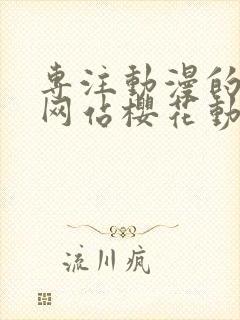 専注動漫的
网站櫻花動
流川疯